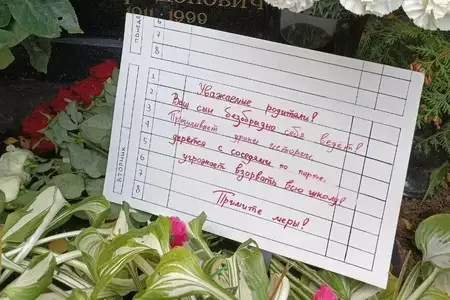 ОНОВИЧ
1911-1999
6
7
8
ВТОРНИК
1
2
3
4
5
6
7
8
Уважаемые родители!
Ваш сын безобразно себя ведет!
Прогуливает уроки истории,
дерется с соседями по парте,
угрожает взорвать всю школу!
Примите меры!